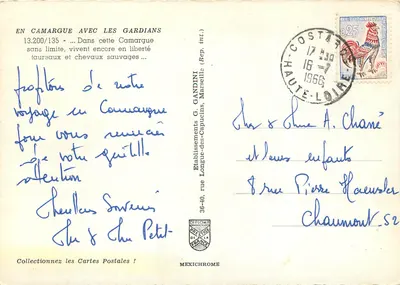 EN CAMARGUE AVEC LES GARDIANS
13.200/135 - ... Dans cette Camargue
sans limite, vivent encore en liberté
taureaux et chevaux sauvages ...
profitons de notre
voyage en Camargue
pour vous remercier
de votre gentille
attention
Meilleurs Souvenirs
Mr & Mme Petit
Collectionnez les Cartes Postales !
Etablissements G. GANDINI
36-40, rue Longue-des-Capucins, Marseille (Rep. int.)
MEXICHROME
17 H 30
16-7
1966
HAUTE-LOIRE
Mr & Mme A. Chané
et leurs enfants
8 rue Pierre
Chaumont. 52